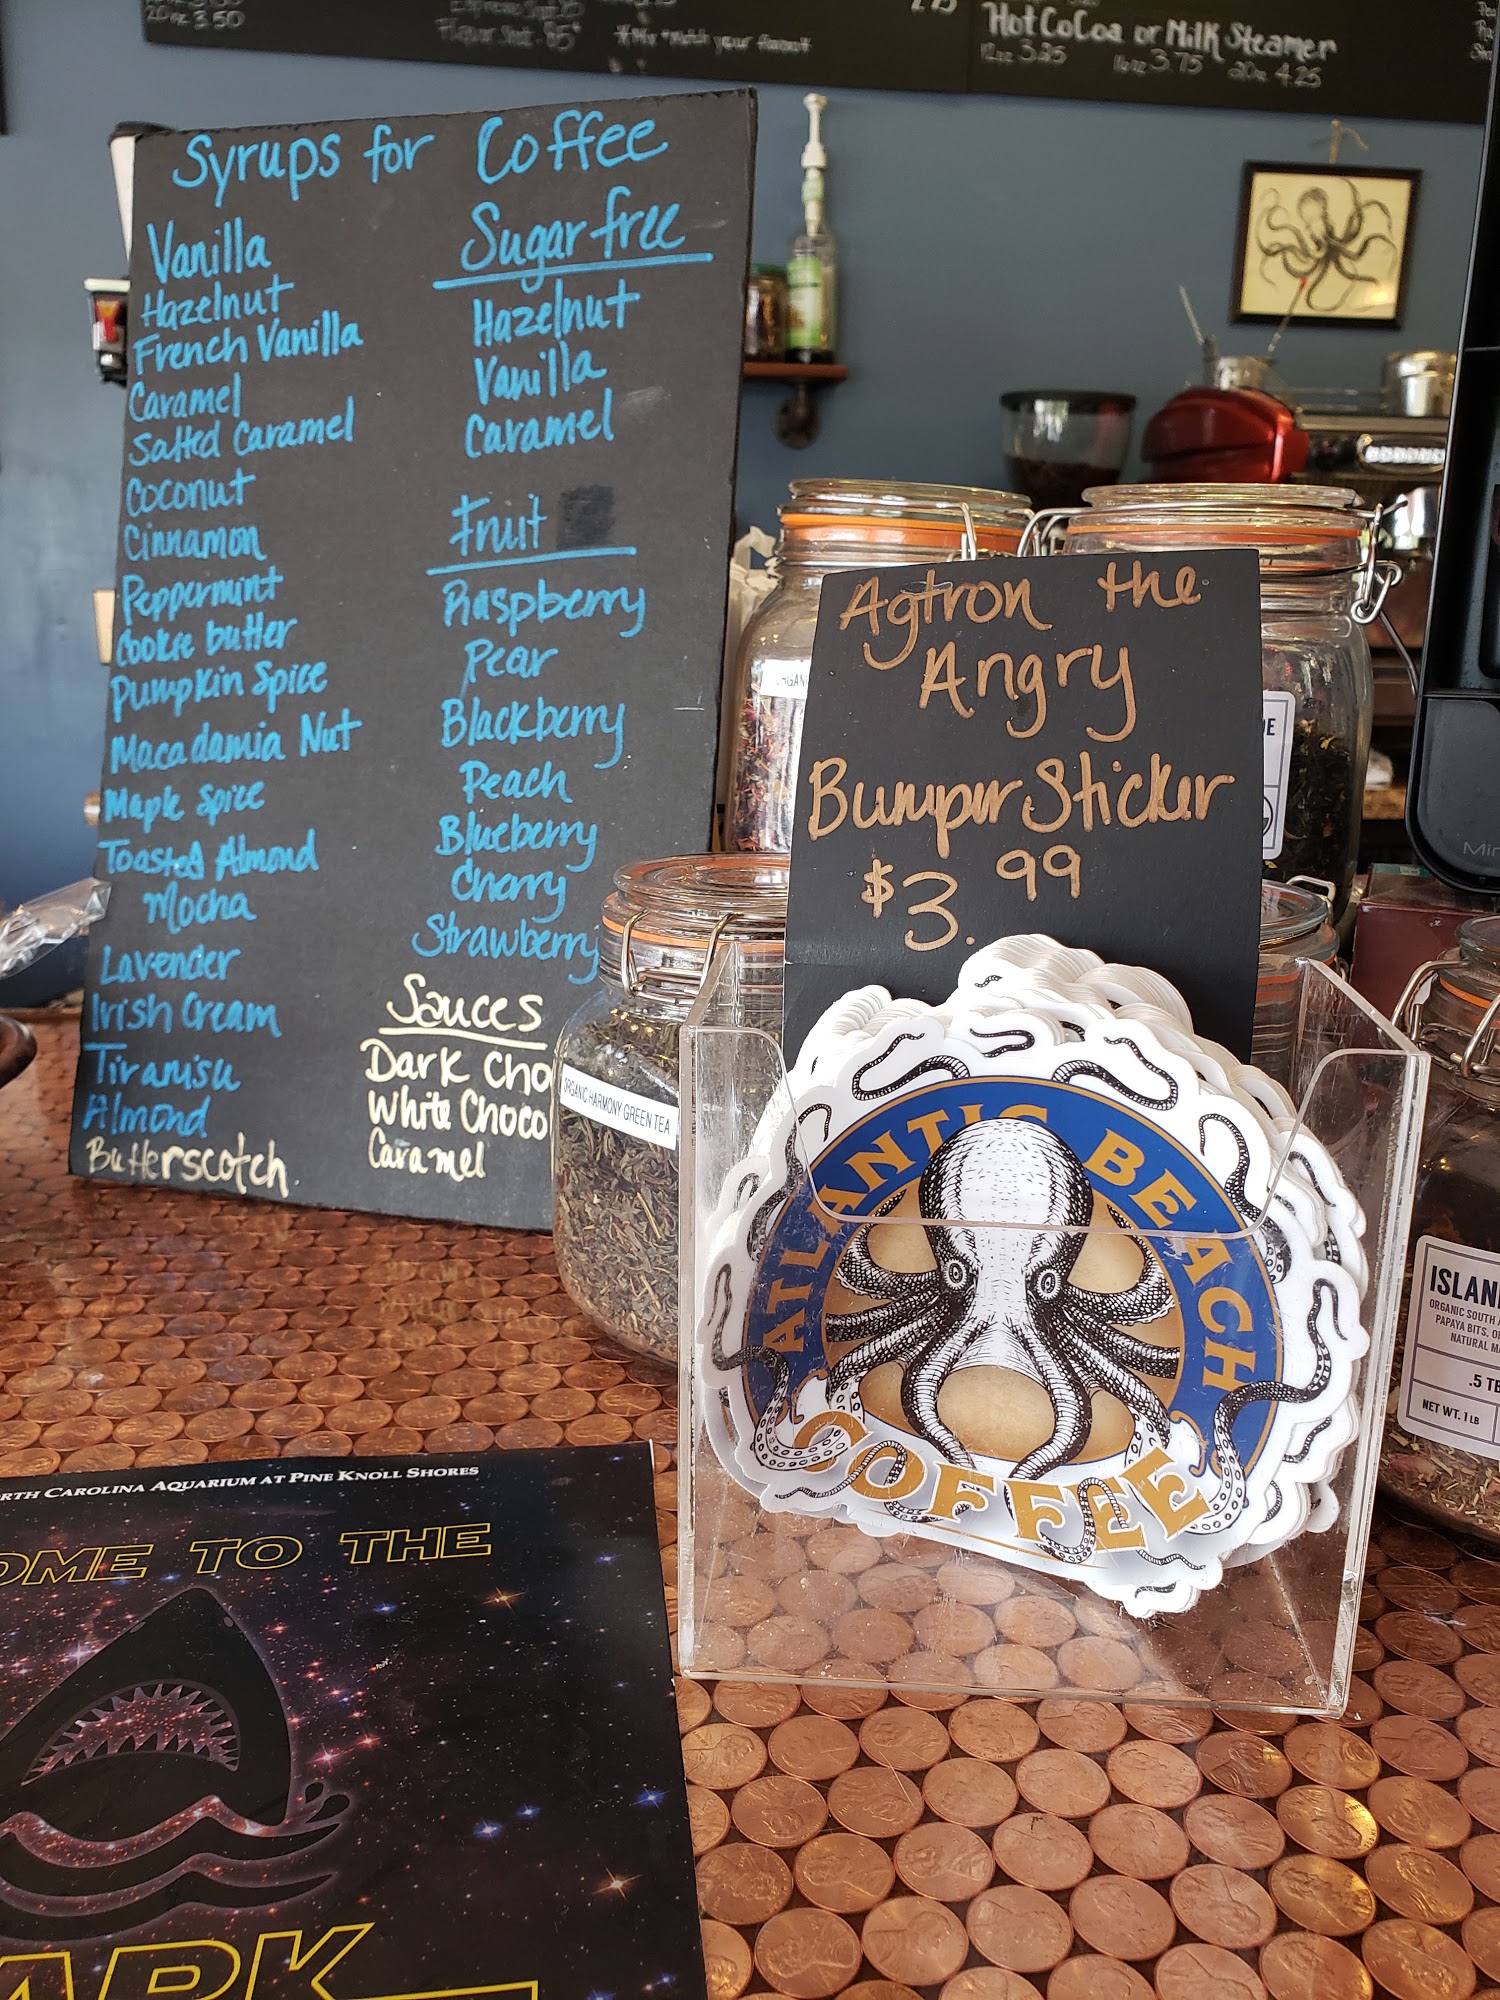 20oz 3.50
Flavor Shot .85¢
*Mix + Match your flavors!
Hot CoCoa or Milk Steamer
12oz 3.25 16oz 3.75 20oz 4.25
Syrups for Coffee
Vanilla
Hazelnut
French Vanilla
Caramel
Salted Caramel
Coconut
Cinnamon
Peppermint
Cookie butter
Pumpkin Spice
Macadamia Nut
Maple Spice
Toasted Almond
Mocha
Lavender
Irish Cream
Tiramisu
Almond
Butterscotch
Sugar free
Hazelnut
Vanilla
Caramel
Fruit
Raspberry
Pear
Blackberry
Peach
Blueberry
Cherry
Strawberry
Sauces
Dark Cho
White Choco
Caramel
Agtron the
Angry
Bumper Sticker
$3.99
ORGANIC HARMONY GREEN TEA
ATLANTIC BEACH
COFFEE
ISLAN
ORGANIC SOUTH A
PAPAYA BITS, O
NATURAL MA
.5 TE
NET WT. 1 LB
RTH CAROLINA AQUARIUM AT PINE KNOLL SHORES
OME TO THE
ARK